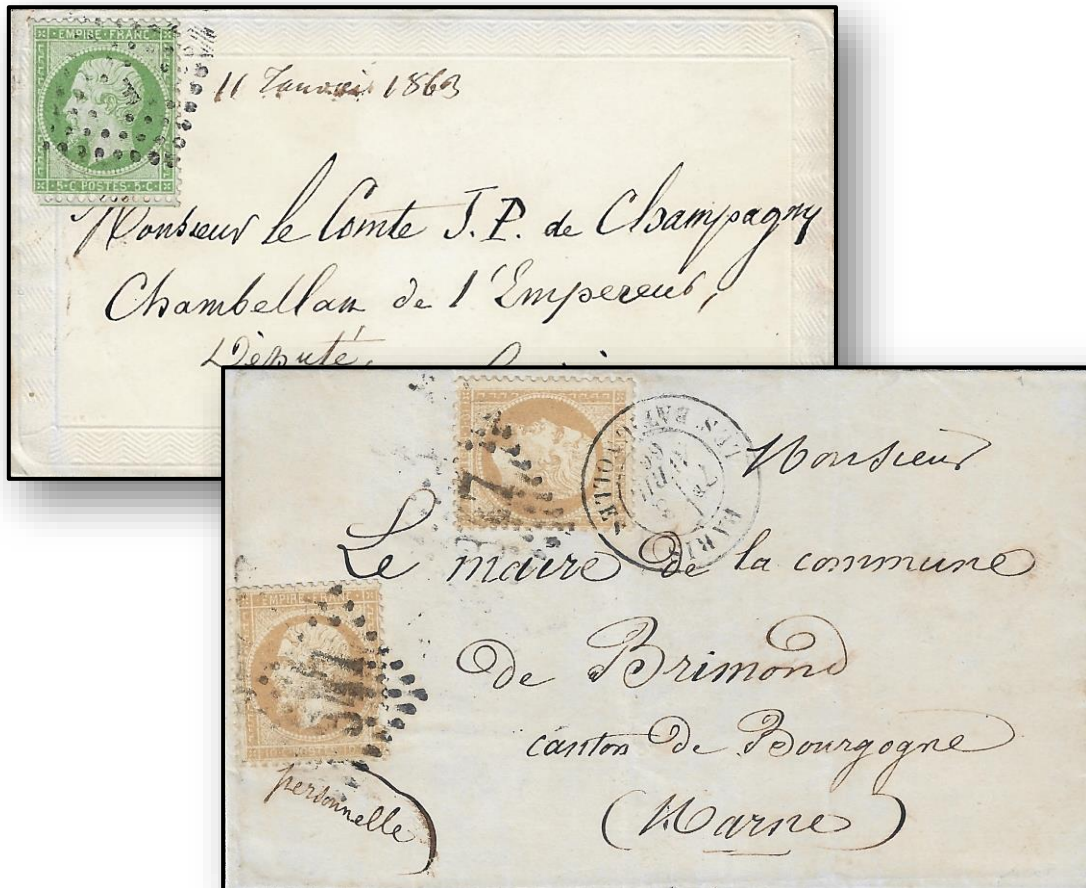 EMPIRE FRANC
5·C·POSTES·5·C
11 Janvier 1863
Monsieur le Comte J. P. de Champagny
Chambellan de l'Empereur,
Député,
PARIS
Monsieur
Le maire de la commune
de Brimond
canton de Bourgogne
(Marne)
EMPIRE FRANC
347
personnelle